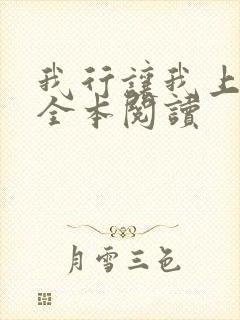 我行讓我上
全本閱讀
月雪三色